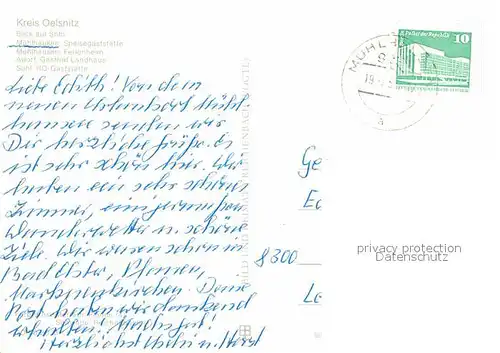 Kreis Oelsnitz
Blick auf Bobenneukirchen
Mühlhausen, Speisegaststätte
Mühlhausen, Ferienheim
Gasthof Landhaus
Sohl, HO-Gaststätte
Liebe Edith! Von dem
neuen Urlaubsort Mühl-
hausen senden wir
Dir herzliche Grüße. Es
ist sehr schön hier. Wir
haben ein sehr schönes
Zimmer, einigermaßen
Wunderwetter u. schöne
Ziele. Wir waren schon in
Bad Elster, Plauen,
Markneukirchen. Deine
Post haben wir dankend
erhalten. Machs gut!
Herzlichst u. Horst
BILD UND HEIMAT REICHENBACH
MÜHLH
a
Palast der Republik
10
Ge
Ed
8300
Le
privacy protection
Datenschutz